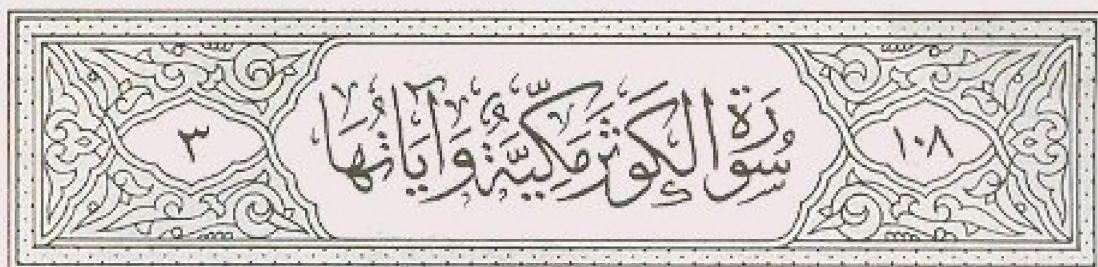 ١٠٨ سُورَةُ الكَوثَرِ مَكِّيَّةٌ وَآيَاتُهَا ٣